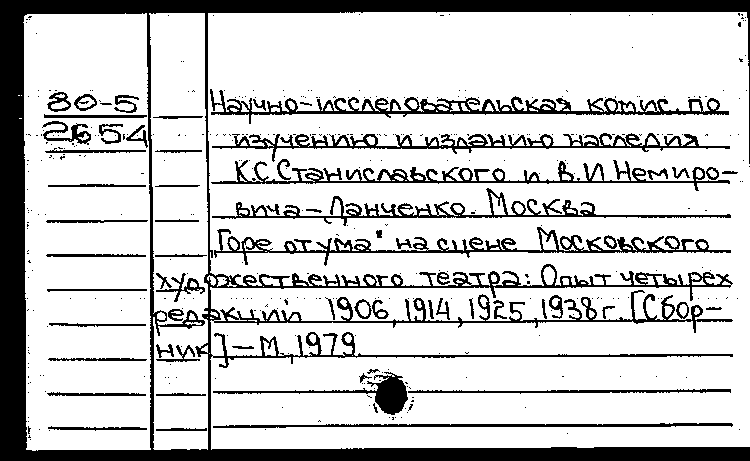 80-5
2654
Научно-исследовательская комис. по
изучению и изданию наследия
К.С.Станиславского и В.И.Немиро-
вича-Данченко. Москва
"Горе от ума" на сцене Московского
художественного театра: Опыт четырех
редакций 1906, 1914, 1925, 1938г. [Сбор-
ник]. - М., 1979.